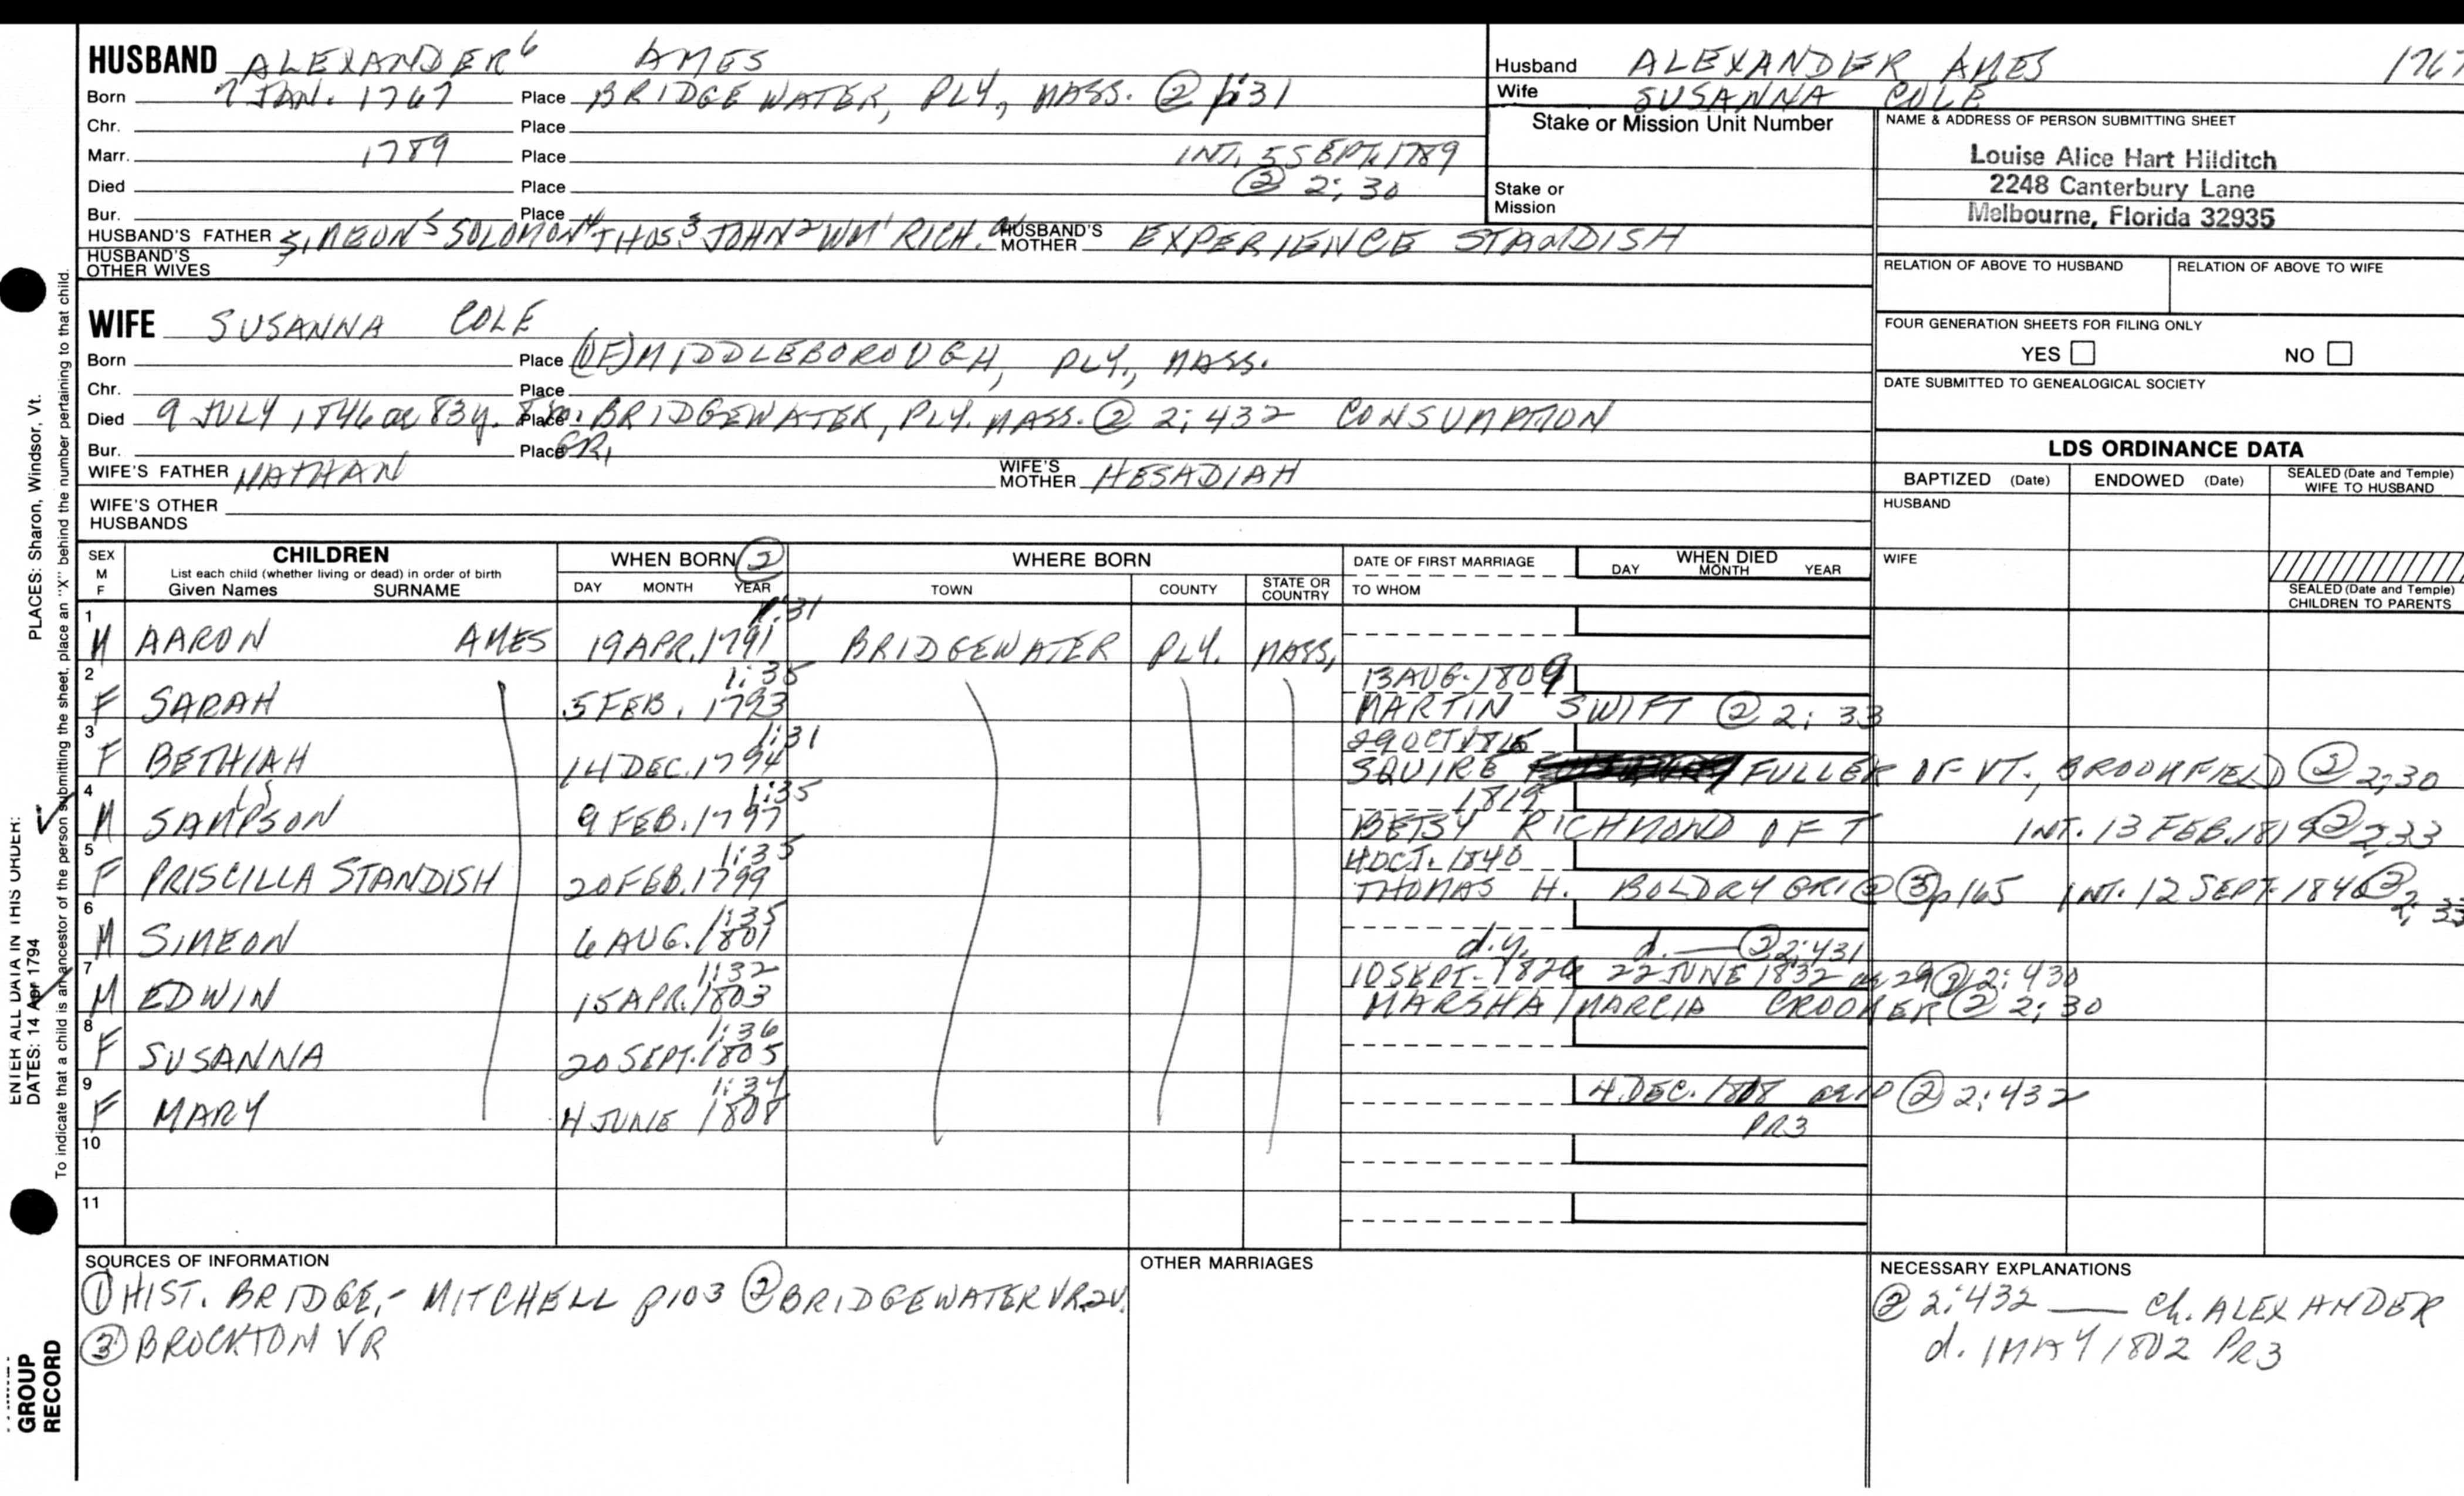 HUSBAND ALEXANDER⁶ AMES
Born 7 JAN. 1767 Place BRIDGEWATER, PLY, MASS. ② 1:31
Chr. Place
Marr. 1789 Place INT. 5 SEPT. 1789
Died Place ② 2:30
Bur. Place
HUSBAND'S FATHER SIMEON⁵ SOLOMON⁴ THOS.³ JOHN² WM¹ RICH. HUSBAND'S MOTHER EXPERIENCE STANDISH
HUSBAND'S OTHER WIVES
Husband ALEXANDER AMES 1767
Wife SUSANNA COLE
Stake or Mission Unit Number
Stake or Mission
NAME & ADDRESS OF PERSON SUBMITTING SHEET
Louise Alice Hart Hilditch
2248 Canterbury Lane
Melbourne, Florida 32935
RELATION OF ABOVE TO HUSBAND RELATION OF ABOVE TO WIFE
FOUR GENERATION SHEETS FOR FILING ONLY
YES NO
DATE SUBMITTED TO GENEALOGICAL SOCIETY
WIFE SUSANNA COLE
Born Place (OF) MIDDLEBOROUGH, PLY., MASS.
Chr. Place
Died 9 JULY 1846 ae 83y. Place BRIDGEWATER, PLY. MASS. ② 2:432 CONSUMPTION
Bur. Place GR1
WIFE'S FATHER NATHAN WIFE'S MOTHER HESADIAH
WIFE'S OTHER HUSBANDS
LDS ORDINANCE DATA
BAPTIZED (Date) ENDOWED (Date) SEALED (Date and Temple) WIFE TO HUSBAND
HUSBAND
WIFE
SEALED (Date and Temple) CHILDREN TO PARENTS
SEX M F
CHILDREN
List each child (whether living or dead) in order of birth
Given Names SURNAME
WHEN BORN ②
DAY MONTH YEAR
WHERE BORN
TOWN COUNTY STATE OR COUNTRY
DATE OF FIRST MARRIAGE
TO WHOM
WHEN DIED
DAY MONTH YEAR
1 1:31
M AARON AMES 19 APR. 1791 BRIDGEWATER PLY. MASS.
2 1:35 13 AUG. 1809
F SARAH 5 FEB. 1793 MARTIN SWIFT ② 2:33
3 1:31 29 OCT 1815
F BETHIAH 14 DEC. 1794 SQUIRE FULLER OF VT., BROOKFIELD ② 2:30
4 1:35 1819
M SAMPSON 9 FEB. 1797 BETSY RICHMOND OF T INT. 13 FEB. 1819 ② 2:33
5 1:35 4 OCT. 1840
F PRISCILLA STANDISH 20 FEB. 1799 THOMAS H. BOLDRY GR1 @ ③ p165 INT. 12 SEPT. 1840 ② 2:33
6 1:35
M SIMEON 6 AUG. 1801 d.y. d. — ② 2:431
7 1:32 10 SEPT. 1826 22 JUNE 1832 ae 29 ② 2:430
M EDWIN 15 APR. 1803 MARSHA/MARCIA CROOKER ② 2:30
8 1:36
F SUSANNA 20 SEPT. 1805
9 1:34 4 DEC. 1808 ② 2:432
F MARY 4 JUNE 1808 PR3
10
11
SOURCES OF INFORMATION
① HIST. BRIDGE,- MITCHELL p103 ② BRIDGEWATER VR 2V.
③ BROCKTON VR
OTHER MARRIAGES
NECESSARY EXPLANATIONS
② 2:432 — ch. ALEXANDER
d. 1 MAY 1802 PR3
ENTER ALL DATA IN THIS ORDER:
DATES: 14 Apr 1794 PLACES: Sharon, Windsor, Vt.
To indicate that a child is an ancestor of the person submitting the sheet, place an "X" behind the number pertaining to that child.
GROUP
RECORD